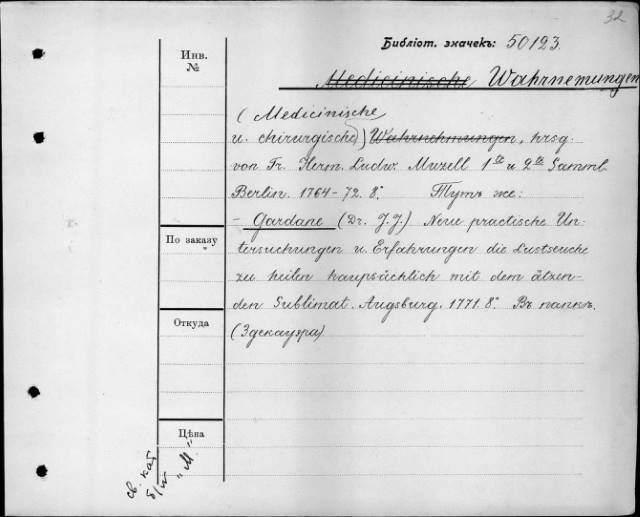 32
Библіот. значекъ: 50123.
Medicinische Wahrnemungen
Инв.
№
(Medicinische
u. chirurgische) Wahrnehmungen, hrsg.
von Fr. Herm. Ludw. Muzell 1ste u 2te Samml.
Berlin. 1764-72. 8°. Тутъ же:
- Gardane (Dr. J. J.) Neue practische Un-
По заказу
tersuchungen u. Erfahrungen die Lustseuche
zu heilen haupsächlich mit dem ätzen-
den Sublimat. Augsburg. 1771. 8°. Въ папкѣ.
Откуда
(Здекауэра)
Цѣна
св. кат
б/м "М."